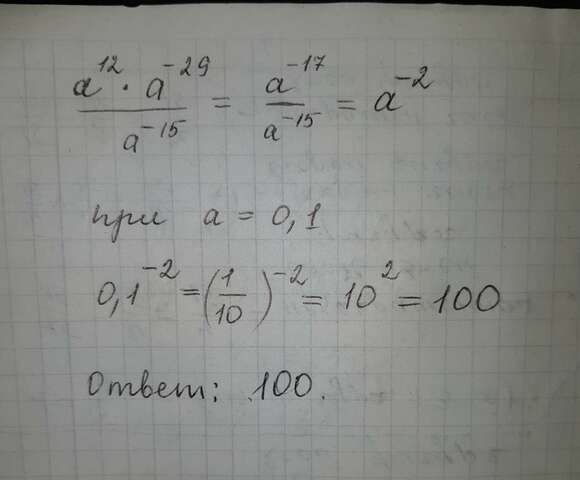 a^12 · a^-29 / a^-15 = a^-17 / a^-15 = a^-2
при a = 0,1
0,1^-2 = (1/10)^-2 = 10^2 = 100
Ответ: 100.